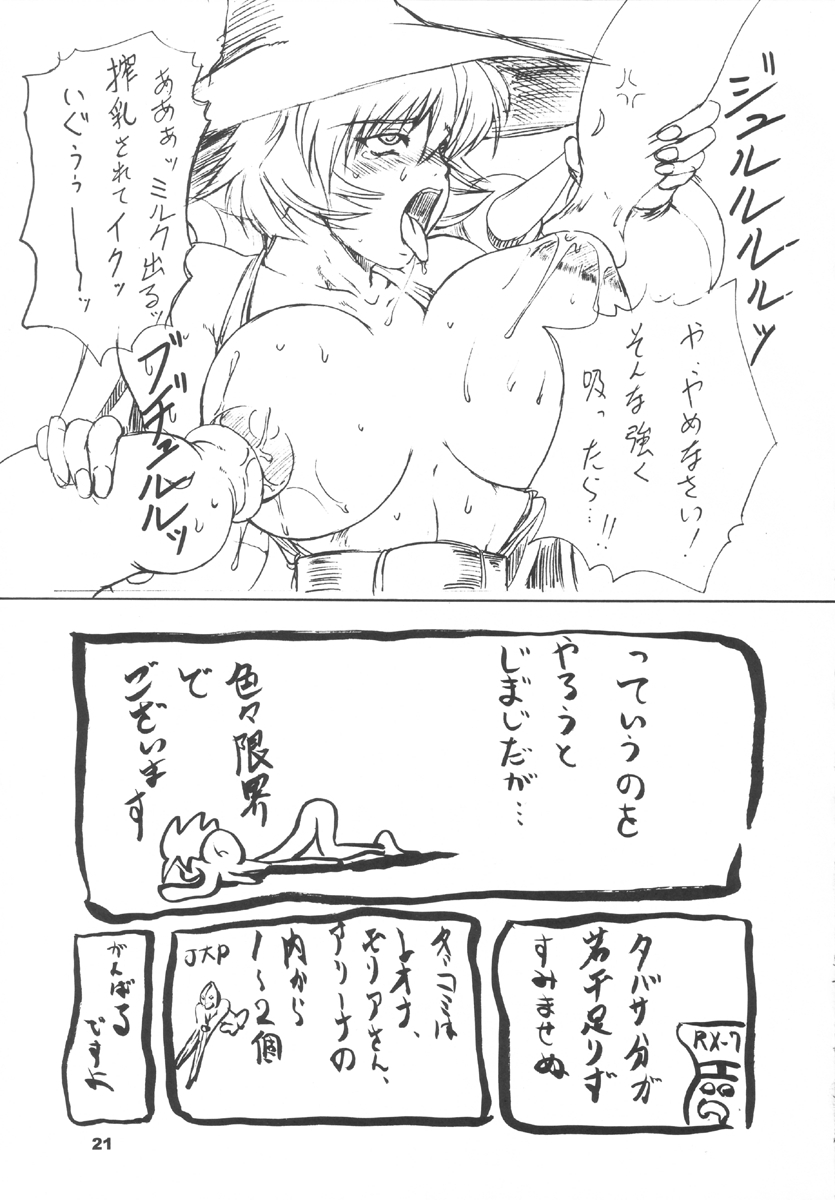 ジュルルルルルッ
や、やめなさい!
そんな強く
吸ったら…!!
あああッミルク出るッ
搾乳されてイクッ
いぐぅぅーーッ
ブヂュルルルッ
っていうのを
やろうと
じまじだが…
色々限界
で
ございます
タバサ分が
若干足りず
すみませぬ
RX-7
レオナ、
モリアさん、
アリーナの
内から
1~2個
がんばる
ですよ
21